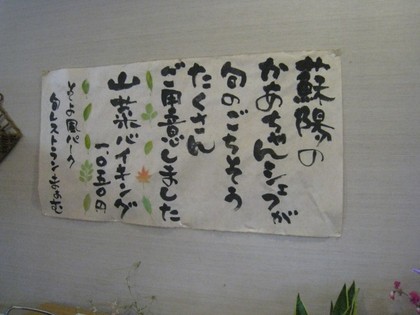 蘇陽の
かあちゃんシェフが
旬のごちそう
たくさん
ご用意しました
山菜バイキング
1,050円
そよ風パーク
旬レストラン